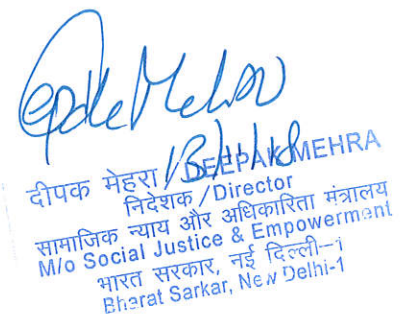 Deepak Mehra
13/11/18
दीपक मेहरा / DEEPAK MEHRA
निदेशक / Director
सामाजिक न्याय और अधिकारिता मंत्रालय
M/o Social Justice & Empowerment
भारत सरकार, नई दिल्ली–1
Bharat Sarkar, New Delhi-1